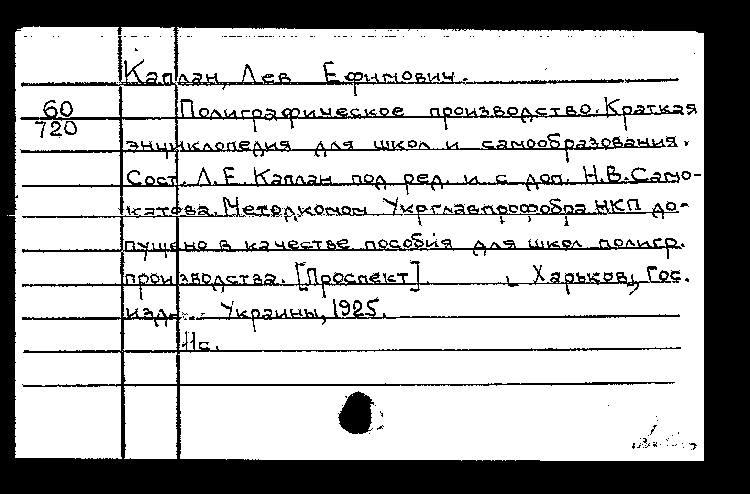 Каплан, Лев Ефимович.
60
720
Полиграфическое производство. Краткая
энциклопедия для школ и самообразования.
Сост. Л.Е. Каплан под ред. и с доп. Н.В.Само-
катова. Методкомом Укрглавпрофобра НКП до-
пущено в качестве пособия для школ полигр.
производства. [Проспект]. Харьков, Гос.
изд. Украины, 1925.
11с.